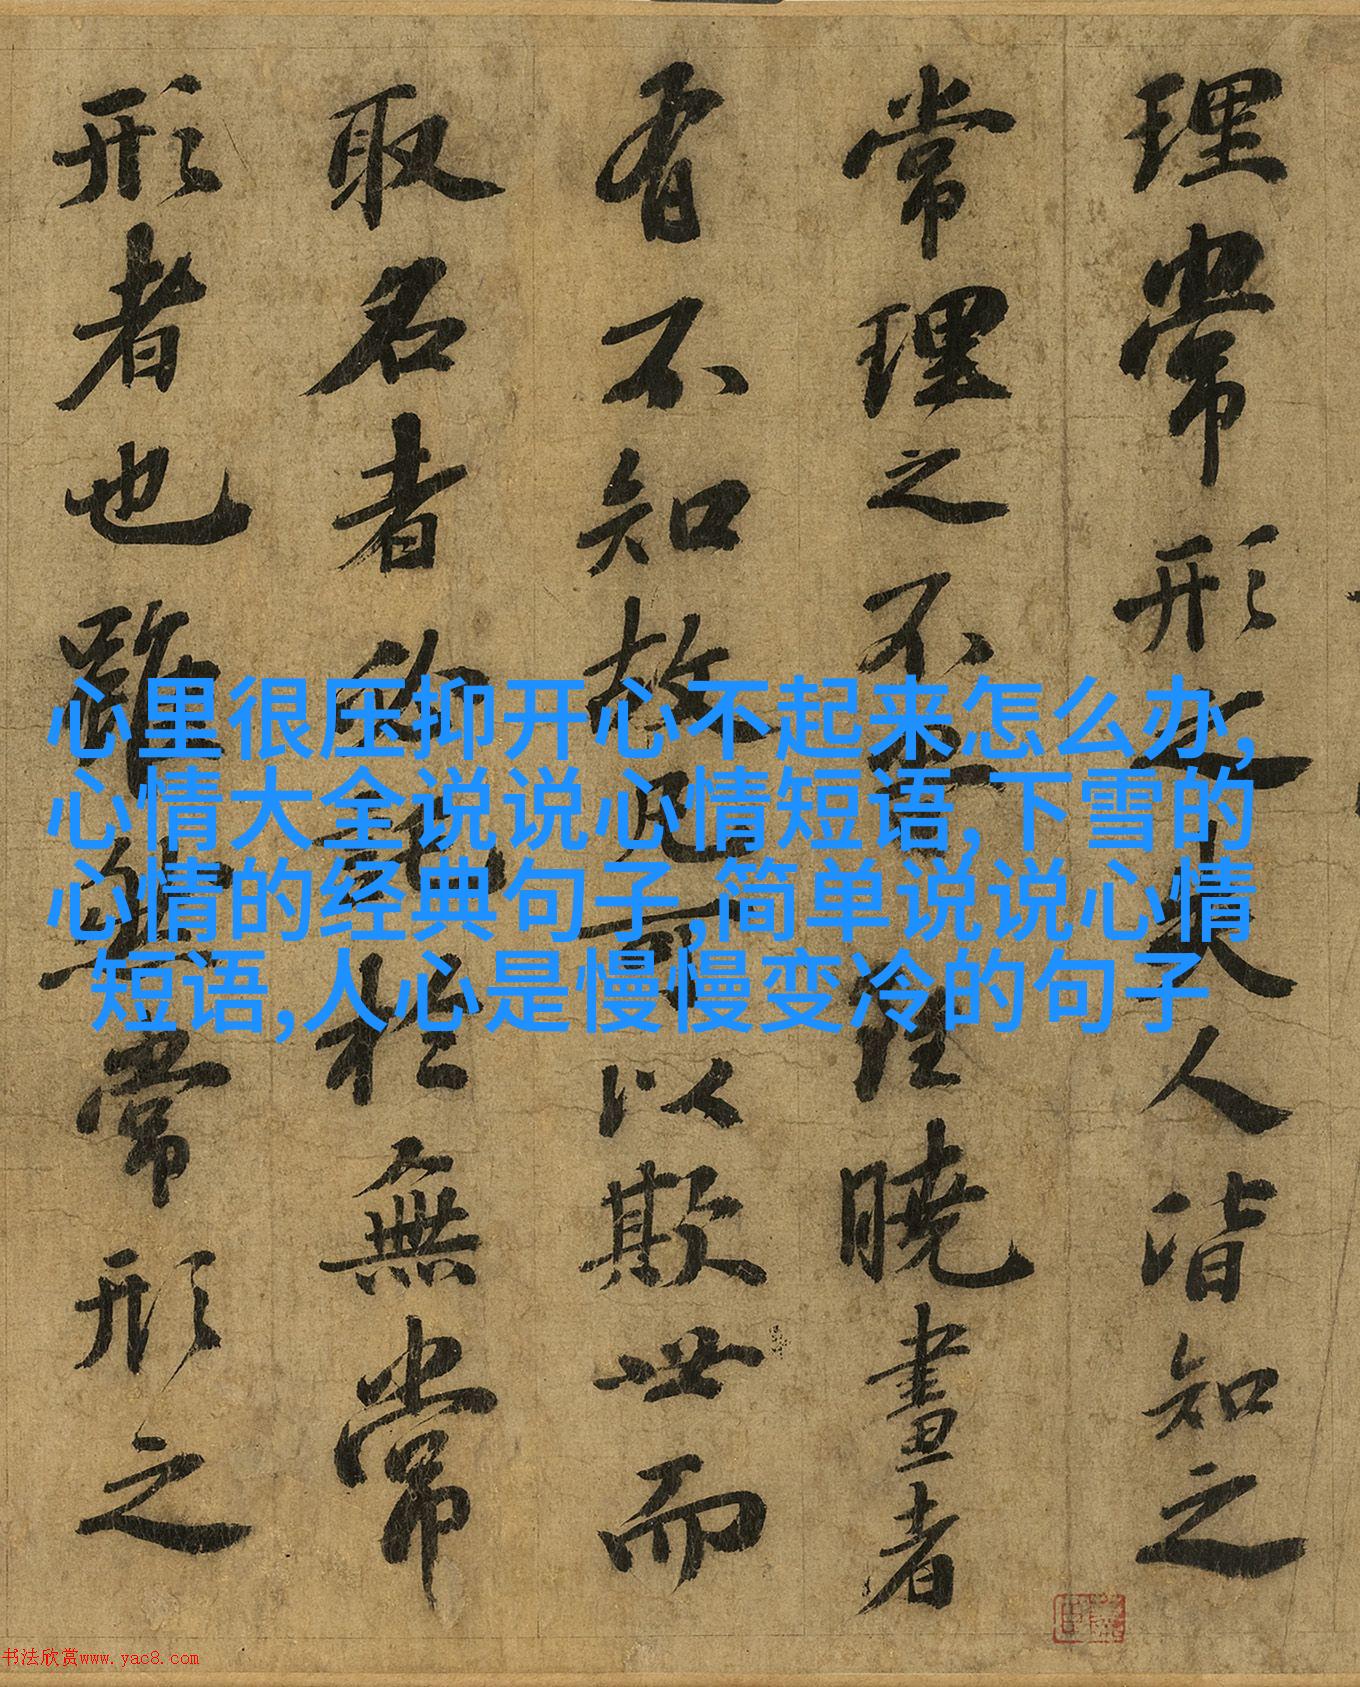 理常形之失人皆知之
常理之不曉畫者
有不知故凡可以欺世而
取名者必託於無常
形者也雖然常形之
心里很压抑开心不起来怎么办,
心情大全说说心情短语,下雪的
心情的经典句子,简单说说心情
短语,人心是慢慢变冷的句子
书法欣赏www.yac8.com